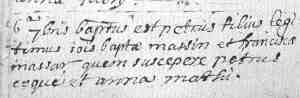 6 7bris baptus est petrus filius legi
timus iois bapta massin et francisca
massar quem suscepere petrus
et anna mathei.